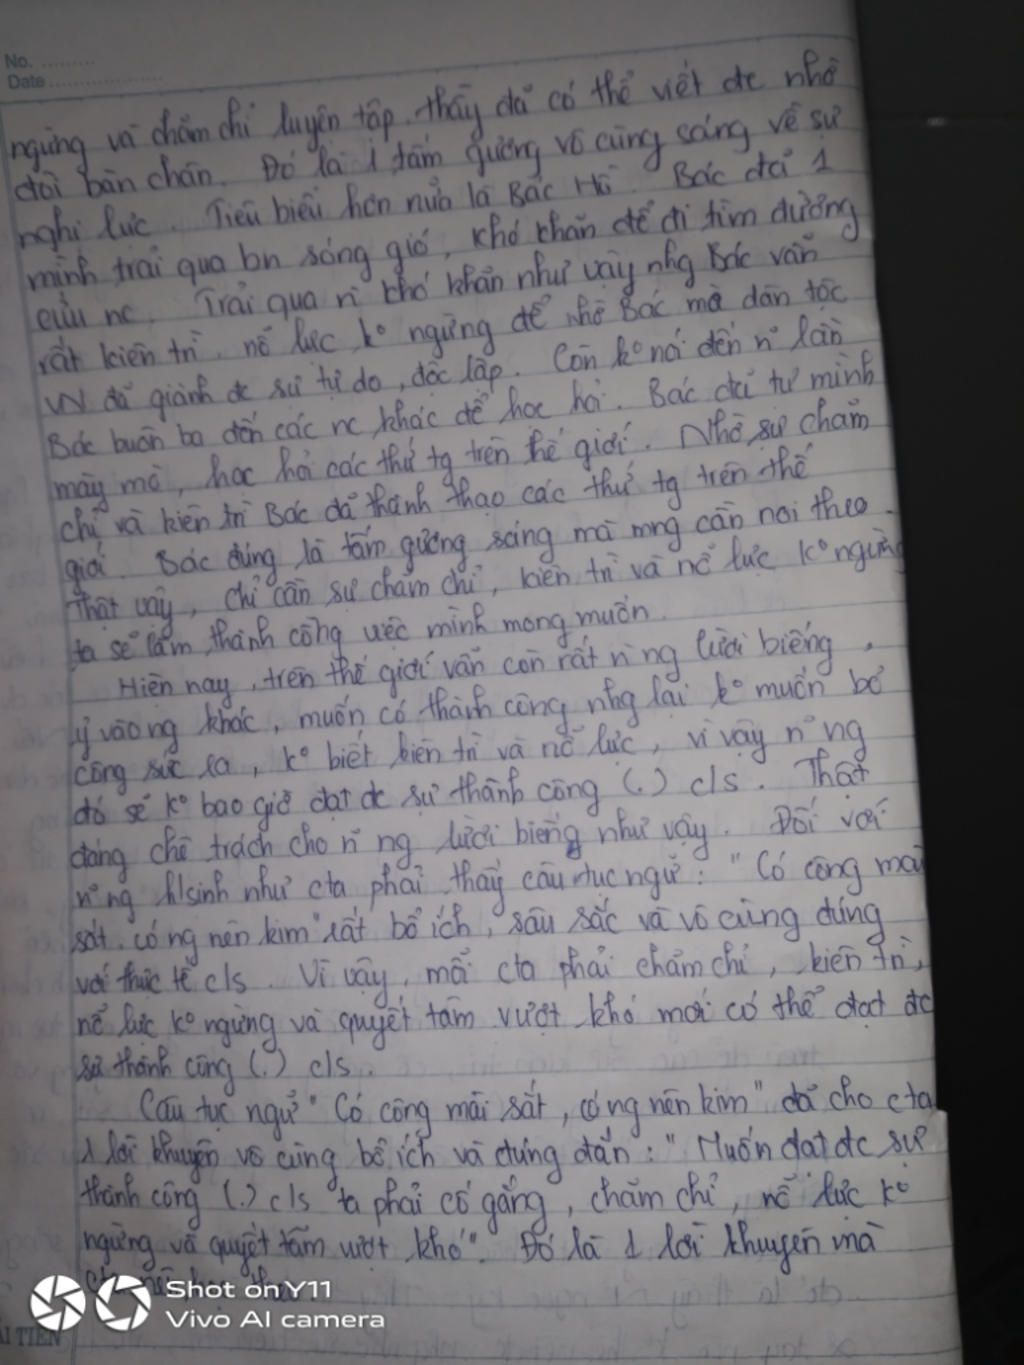 No. .........
Date ...................
ngừng và chăm chỉ luyện tập. thầy đã có thể viết đc nhờ
đôi bàn chân. Đó là 1 tấm gương vô cùng sáng về sự
nghị lực. Tiêu biểu hơn nữa là Bác Hồ. Bác đã 1
mình trải qua bn sóng gió, khó khăn để đi tìm đường
cứu nc. Trải qua n~ khó khăn như vậy nhg Bác vẫn
rất kiên trì, nỗ lực k° ngừng để nhờ Bác mà dân tộc
VN đã giành đc sự tự do, độc lập. Còn k° nói đến n~ lần
Bác buôn ba đến các nc khác để học hỏi. Bác đã tự mình
mày mò, học hỏi các thứ tg trên thế giới. Nhờ sự chăm
chỉ và kiên trì Bác đã thành thạo các thứ tg trên thế
giới. Bác đúng là tấm gương sáng mà mng cần noi theo.
Thật vậy, chỉ cần sự chăm chỉ, kiên trì và nỗ lực k° ngừng
ta sẽ làm thành công việc mình mong muốn.
Hiện nay, trên thế giới vẫn còn rất n` ng lười biếng,
ỷ vào ng khác, muốn có thành công nhg lại k° muốn bỏ
công sức ra, k° biết kiên trì và nỗ lực, vì vậy n~ ng
đó sẽ k° bao giờ đạt đc sự thành công (.) c/s. Thật
đáng chê trách cho n~ ng lười biếng như vậy. Đối với
n~ ng h/sinh như cta phải thấy câu tục ngữ: "Có công mài
sắt, có ng nên kim" rất bổ ích, sâu sắc và vô cùng đúng
với thực tế c/s. Vì vậy, mỗi cta phải chăm chỉ, kiên trì,
nỗ lực k° ngừng và quyết tâm vượt khó mới có thể đạt đc
sự thành công (.) c/s.
Câu tục ngữ "Có công mài sắt, có ng nên kim" đã cho cta
1 lời khuyên vô cùng bổ ích và đúng đắn: "Muốn đạt đc sự
thành công (.) c/s ta phải cố gắng, chăm chỉ, nỗ lực k°
ngừng và quyết tâm vượt khó". Đó là 1 lời khuyên mà
Shot on Y11
Vivo AI camera
TIẾN